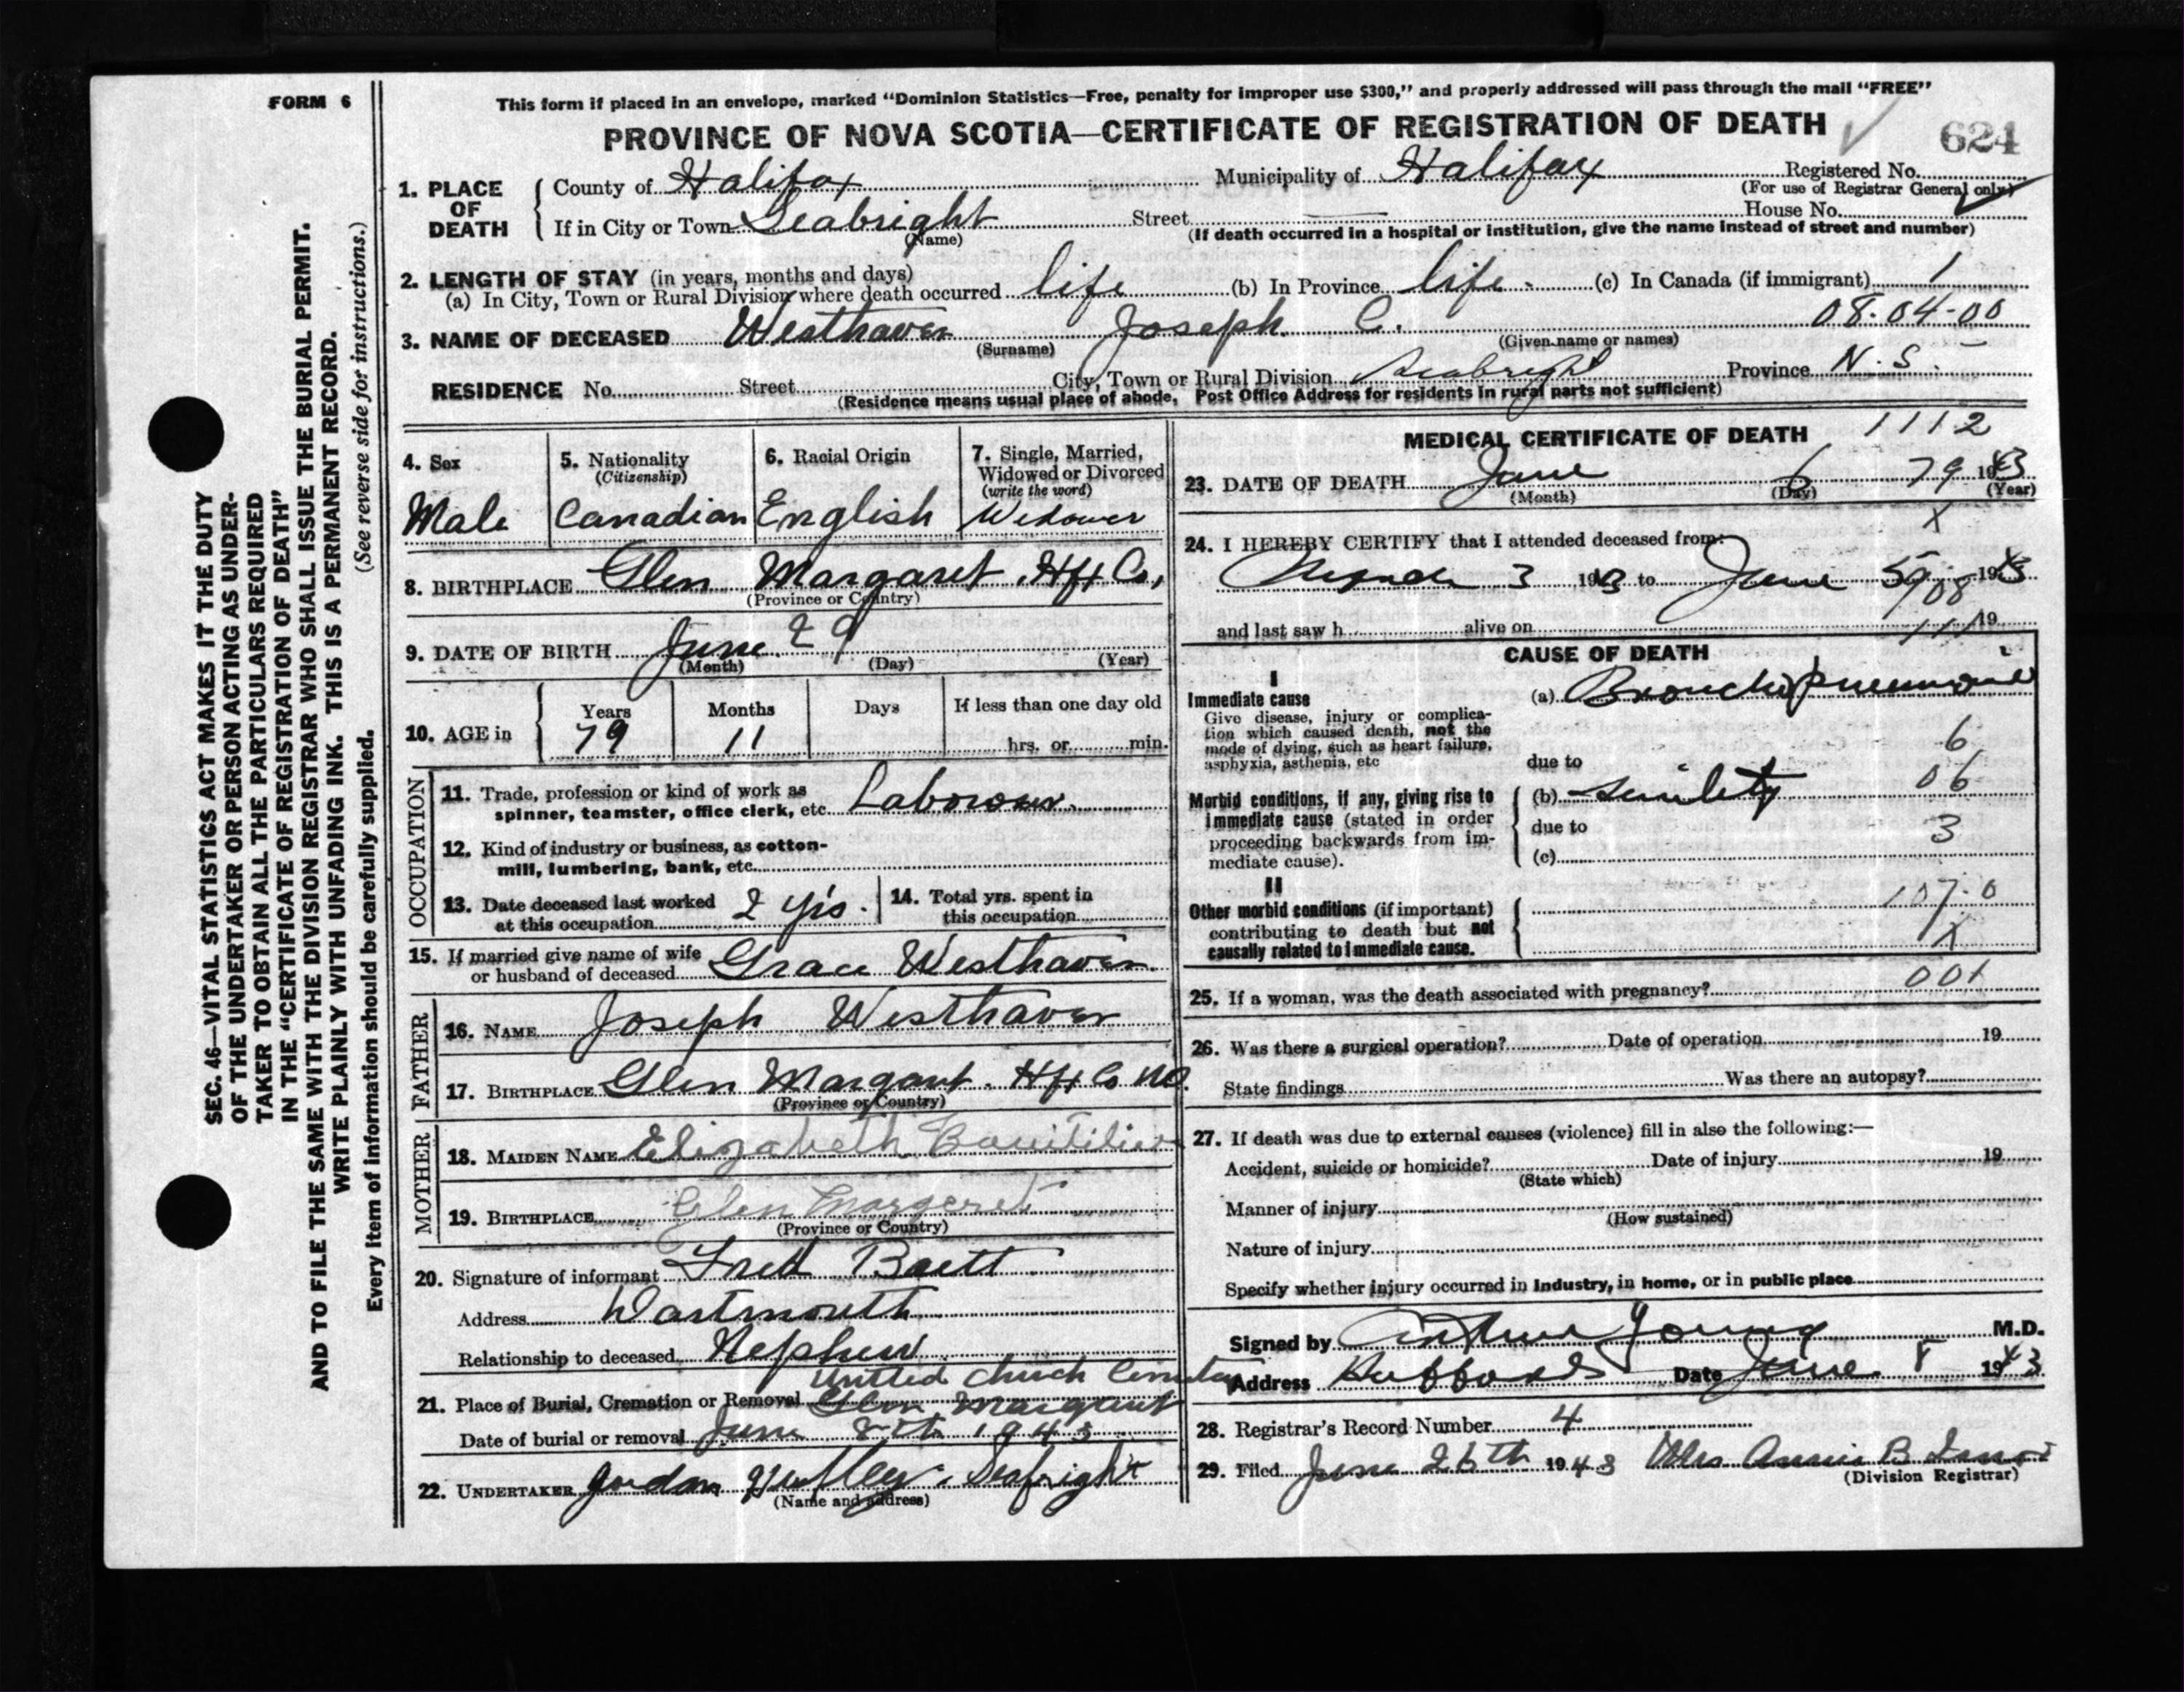 FORM 6
This form if placed in an envelope, marked “Dominion Statistics—Free, penalty for improper use $300,” and properly addressed will pass through the mail “FREE”
PROVINCE OF NOVA SCOTIA—CERTIFICATE OF REGISTRATION OF DEATH
624
SEC. 46—VITAL STATISTICS ACT MAKES IT THE DUTY
OF THE UNDERTAKER OR PERSON ACTING AS UNDER-
TAKER TO OBTAIN ALL THE PARTICULARS REQUIRED
IN THE “CERTIFICATE OF REGISTRATION OF DEATH”
AND TO FILE THE SAME WITH THE DIVISION REGISTRAR WHO SHALL ISSUE THE BURIAL PERMIT.
WRITE PLAINLY WITH UNFADING INK. THIS IS A PERMANENT RECORD.
(See reverse side for instructions.)
Every item of information should be carefully supplied.
1. PLACE OF DEATH
County of Halifax Municipality of Halifax Registered No.
(For use of Registrar General only)
If in City or Town Seabright Street House No.
(Name) (If death occurred in a hospital or institution, give the name instead of street and number)
2. LENGTH OF STAY (in years, months and days)
(a) In City, Town or Rural Division where death occurred life (b) In Province life. (c) In Canada (if immigrant) 1
08-04-00
3. NAME OF DECEASED Westhaver Joseph C.
(Surname) (Given name or names)
RESIDENCE No. Street City, Town or Rural Division Seabright Province N.S.
(Residence means usual place of abode, Post Office Address for residents in rural parts not sufficient)
4. Sex
Male
5. Nationality
(Citizenship)
Canadian
6. Racial Origin
English
7. Single, Married,
Widowed or Divorced
(write the word)
Widower
8. BIRTHPLACE Glen Margaret, Hfx Co,
(Province or Country)
9. DATE OF BIRTH June 29
(Month) (Day) (Year)
10. AGE in
Years Months Days If less than one day old
79 11 hrs. or min.
OCCUPATION
11. Trade, profession or kind of work as
spinner, teamster, office clerk, etc.
12. Kind of industry or business, as cotton-
mill, lumbering, bank, etc.
13. Date deceased last worked
at this occupation 2 yrs.
14. Total yrs. spent in
this occupation
15. If married give name of wife
or husband of deceased Grace Westhaver
FATHER
16. NAME Joseph Westhaver
17. BIRTHPLACE Glen Margaret. Hfx Co
(Province or Country)
MOTHER
18. MAIDEN NAME Elizabeth
19. BIRTHPLACE Glen Margeret
(Province or Country)
20. Signature of informant Fred
Address Dartmouth
Relationship to deceased Nephew
United Church Cemetary
21. Place of Burial, Cremation or Removal Glen Margaret
Date of burial or removal June 8th 1943
22. UNDERTAKER Seabright
(Name and address)
MEDICAL CERTIFICATE OF DEATH 1112
23. DATE OF DEATH June 6 79 1943
(Month) (Day) (Year)
X
24. I HEREBY CERTIFY that I attended deceased from:
3 to June 5 1943
and last saw h alive on 19
CAUSE OF DEATH
I
Immediate cause
Give disease, injury or complica-
tion which caused death, not the
mode of dying, such as heart failure,
asphyxia, asthenia, etc
(a) Bronchopneumonia
6
due to
Morbid conditions, if any, giving rise to
immediate cause (stated in order
proceeding backwards from im-
mediate cause).
(b) Senility 06
due to
3
(c)
II
Other morbid conditions (if important)
contributing to death but not
causally related to immediate cause.
107-0
X
001
25. If a woman, was the death associated with pregnancy?
26. Was there a surgical operation? Date of operation 19
State findings Was there an autopsy?
27. If death was due to external causes (violence) fill in also the following:—
Accident, suicide or homicide? Date of injury 19
(State which)
Manner of injury
(How sustained)
Nature of injury
Specify whether injury occurred in industry, in home, or in public place
Signed by Arthur Young M.D.
Address Hubbards Date June 8 1943
28. Registrar's Record Number 4
29. Filed June 26th 1943 Mrs Annie B
(Division Registrar)